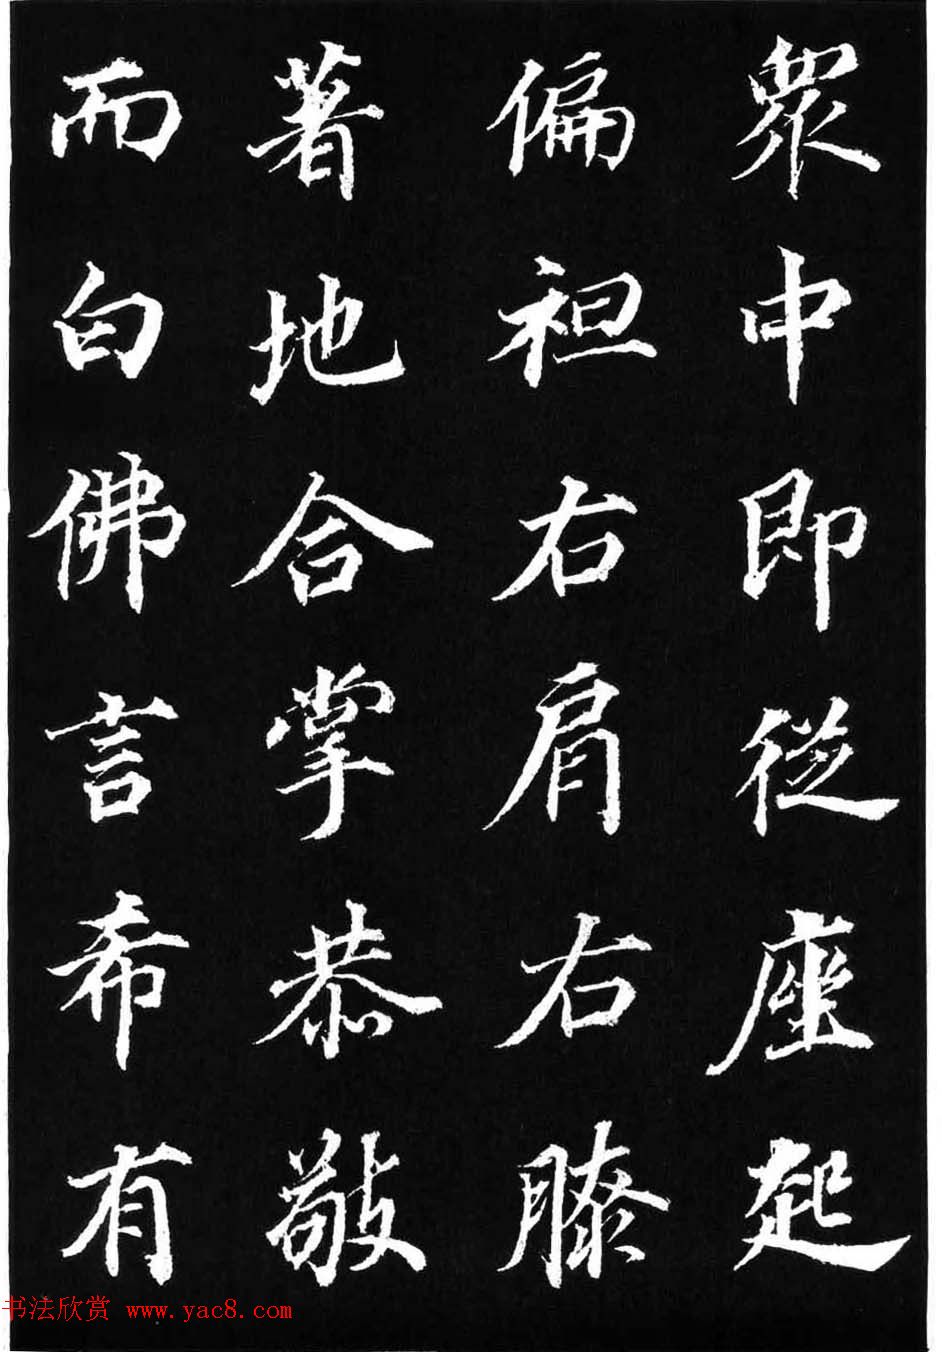 眾中即従座起
偏袒右肩右膝
著地合掌恭敬
而白佛言希有
书法欣赏 www.yac8.com